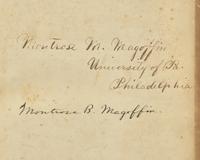 Montrose M. Magoffin
University of Pa.
Philadelphia
Montrose B. Magoffin.